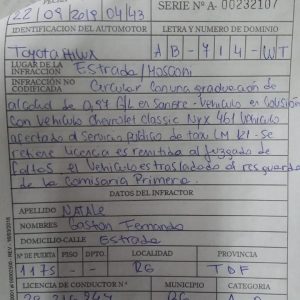 SERIE Nº A- 00232107
22 / 09 / 2019 04 / 43
IDENTIFICACION DEL AUTOMOTOR
LETRA Y NUMERO DE DOMINIO
Toyota Hilux
A B - 714 - WT
LUGAR DE LA INFRACCION
Estrada / Mosconi
INFRACCIÓN NO CODIFICADA
Circular con una graduación de
alcohol de 0,97 G/L en sangre - Vehículo en colisión
con Vehículo Chevrolet classic NYX 461 Vehículo
afectado al Servicio público de taxi LM 121 - Se
retiene Licencia es remitida al juzgado de
faltas el Vehículo es trasladado al resguardo
de la Comisaria Primera
DATOS DEL INFRACTOR
APELLIDO NATALE
NOMBRES Gaston Fernando
DOMICILIO-CALLE Estrada
Nº DE PUERTA PISO DPTO. LOCALIDAD PROVINCIA
1175 - - RG TDF
LICENCIA DE CONDUCTOR Nº MUNICIPIO CATEGORIA
RG